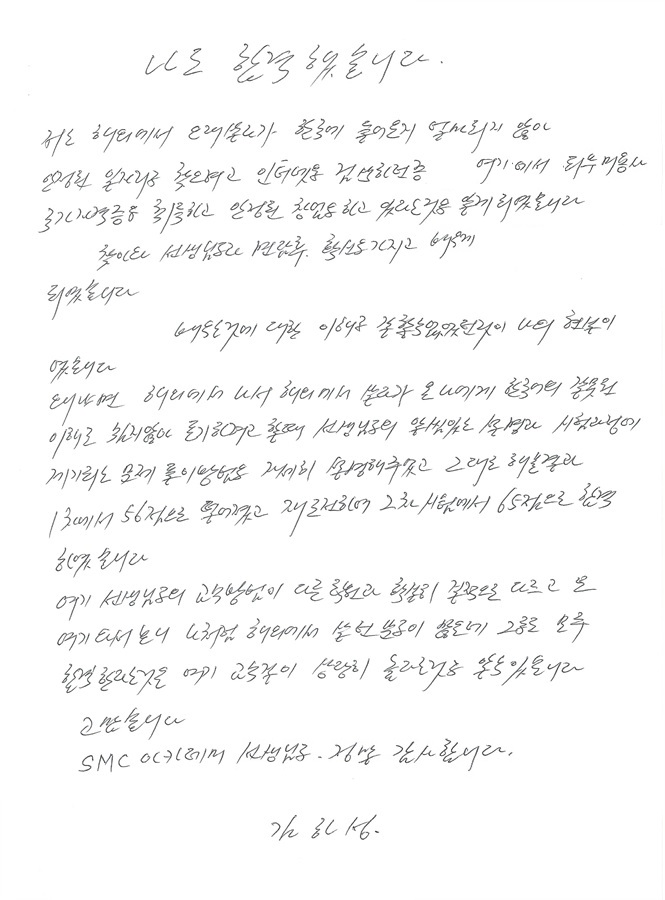 나도 합격했습니다.
저는 해외에서 오래살다가 한국에 들어온지 얼마되지 않아
안정된 일자리를 찾으려고 인터넷을 검색하던중 여기에서 피부미용사
국가자격증을 취득하고 안정된 창업을하고 있다는것을 알게 되였습니다
찾아와 선생님들과 면담후 확신을가지고 배우게
되였습니다
배우는것에 대한 이해를 할수없었던것이 나의 현실이
였습니다
왜냐면 해외에서 나서 해외에서 살다가 온 나에게 한국어의 잘못된
이해로 포기하려고 할때 선생님들의 알심있는 설명과 시험과정에
제기되는 문제 풀이방법을 자세히 설명해주었고 그대로 해본결과
1차에서 56점으로 떨어졌고 재도전하여 2차시험에서 65점으로 합격
하였습니다
여기 선생님들의 교육방법이 다른학원과 확실히 질적으로 다르고 또
여기와서보니 나처럼 해외에서 살던 분들이 많은데 그들도 모두
합격한다는것은 여기 교육질이 상당히 높다는것을 알수있습니다
고맙습니다
SMC 아카데미 선생님들. 정말 감사합니다.
김 화 성.